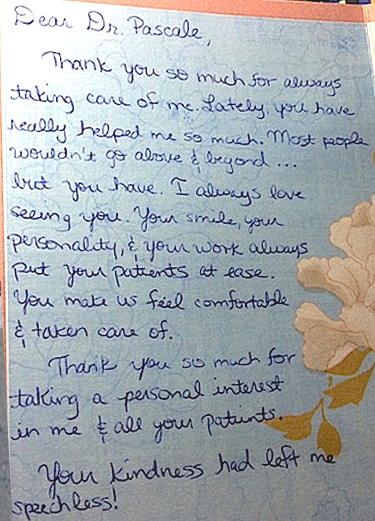 Dear Dr. Pascale,
Thank you so much for always
taking care of me. Lately, you have
really helped me so much. Most people
wouldn't go above & beyond ...
but you have. I always love
seeing you. Your smile, your
personality, & your work always
put your patients at ease.
You make us feel comfortable
& taken care of.
Thank you so much for
taking a personal interest
in me & all your patients.
Your kindness had left me
speechless!